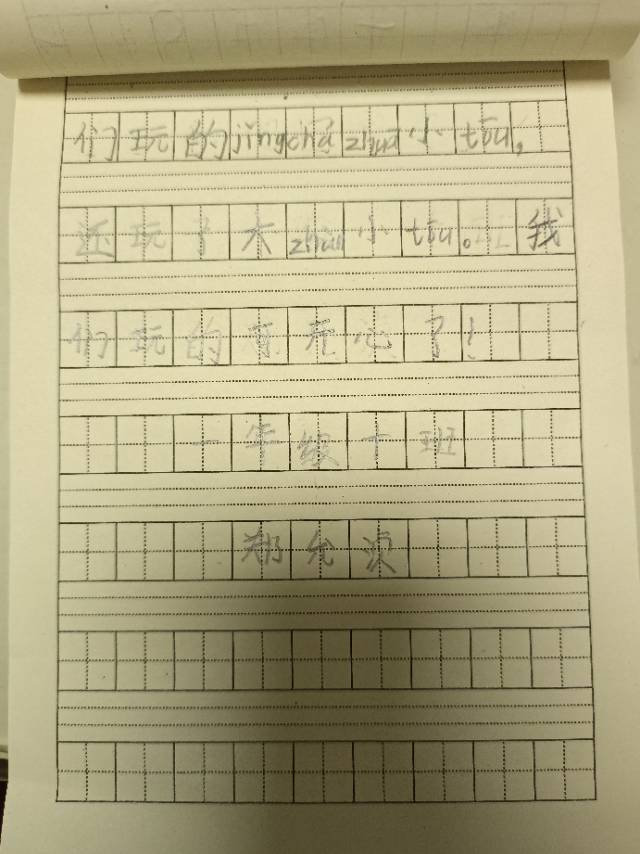 们玩的jǐngchá zhuā小tōu，
还玩了大zhuā小tōu。我
们玩的可开心了！
一年级十班
郑允